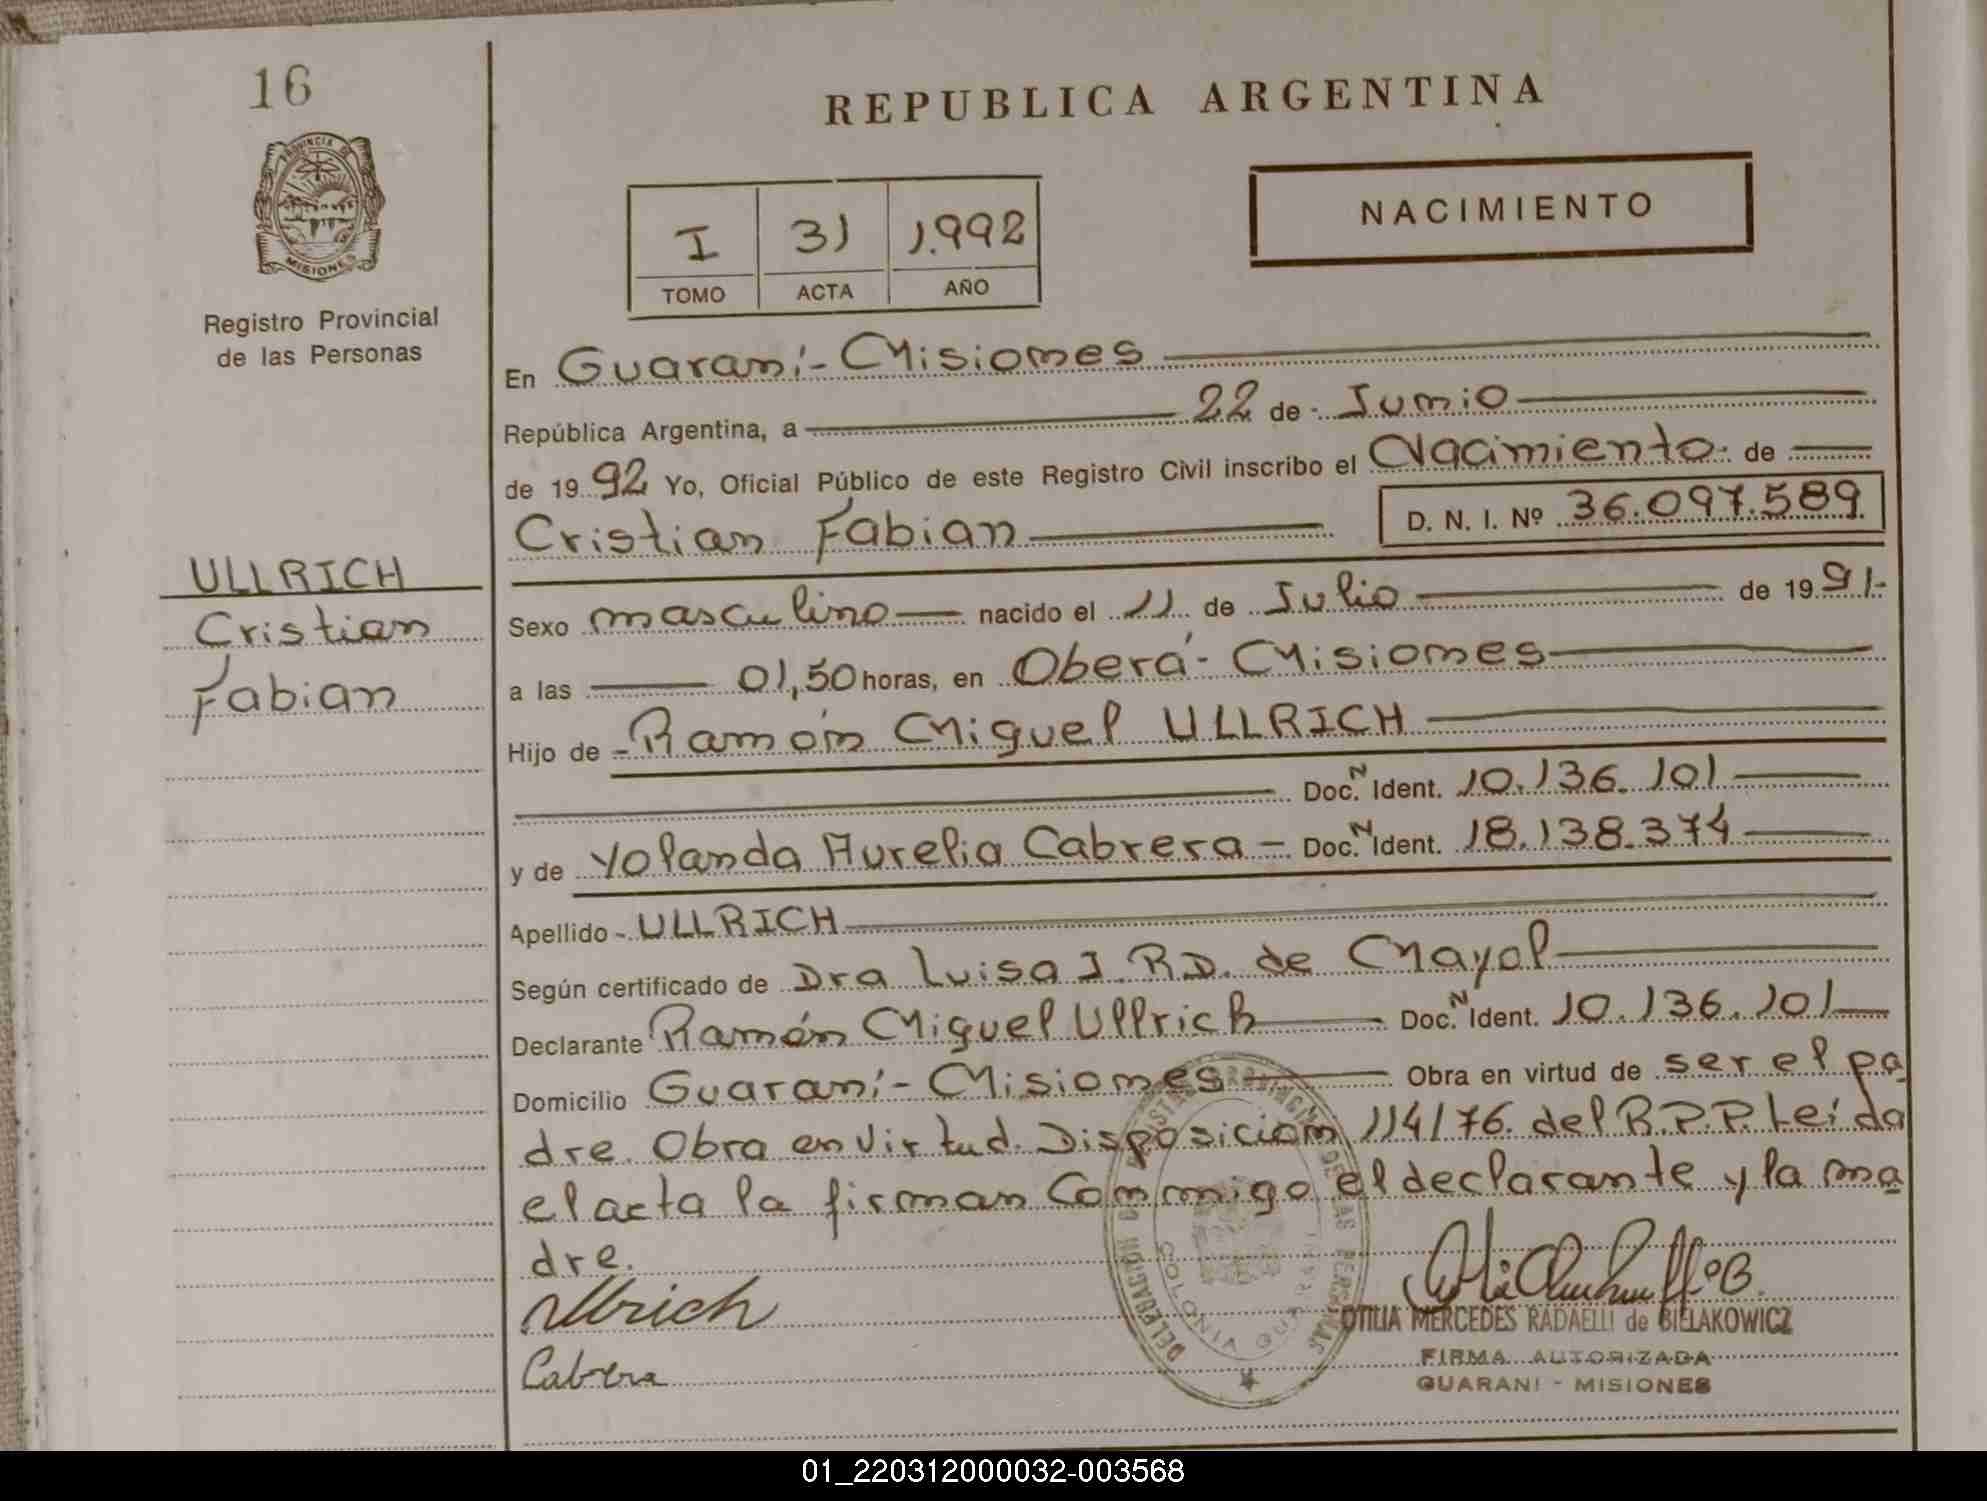 16
REPUBLICA ARGENTINA
PROVINCIA DE
MISIONES
Registro Provincial
de las Personas
NACIMIENTO
I 31 1.992
TOMO ACTA AÑO
En Guaraní - Misiones
República Argentina, a 22 de Junio
de 1992 Yo, Oficial Público de este Registro Civil inscribo el Nacimiento de
Cristian Fabian D. N. I. Nº 36.097.589
ULLRICH
Cristian
Fabian
Sexo masculino nacido el 11 de Julio de 1991-
a las 01,50 horas, en Oberá - Misiones
Hijo de - Ramón Miguel ULLRICH
Doc. N Ident. 10.136.101
y de Yolanda Aurelia Cabrera - Doc. N Ident. 18.138.374
Apellido - ULLRICH
Según certificado de Dra Luisa J. R.D. de Mayol
Declarante Ramón Miguel Ullrich Doc. N Ident. 10.136.101
Domicilio Guaraní - Misiones Obra en virtud de ser el pa
dre. Obra en virtud. Disposición 114/76. del R.P.P. Leída
el acta la firman conmigo el declarante y la ma
dre.
Ullrich
Cabrera
OTILIA MERCEDES RADAELLI de BIELAKOWICZ
FIRMA AUTORIZADA
GUARANI - MISIONES
COLONIA GUARANI
01_220312000032-003568